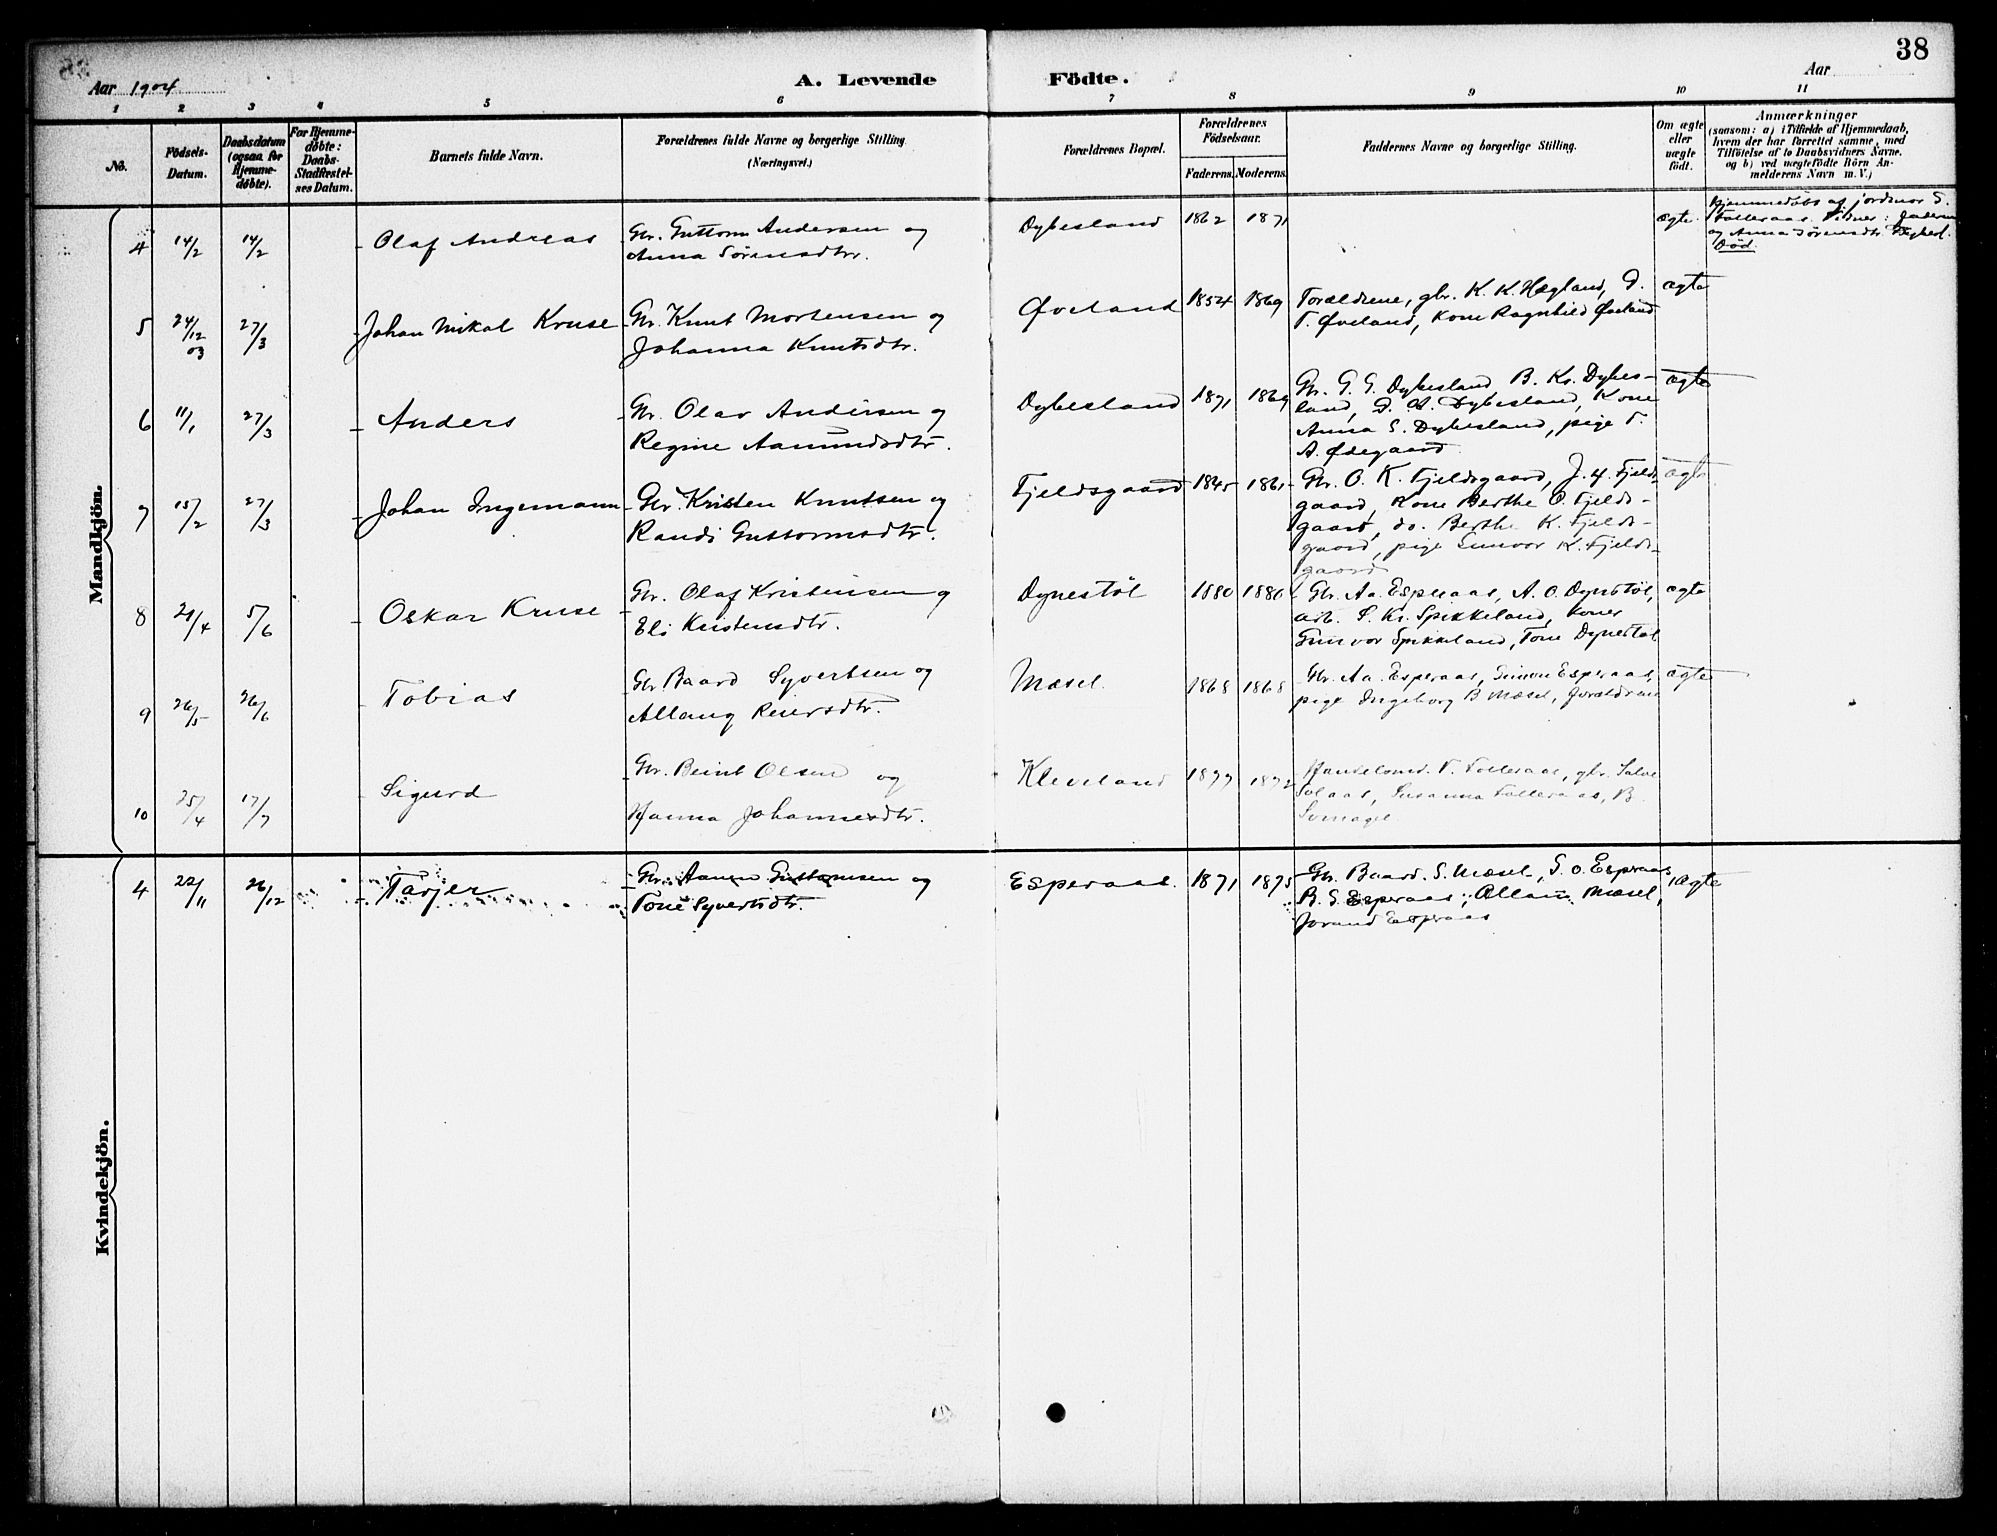 38
Aar 1904
A. Levende Födte.
Aar
1 2 3 4 5 6 7 8 9 10 11
No.
Födsels-Datum.
Daabsdatum (ogsaa for Hjemmedöbte).
For Hjemmedöbte: Daabs-Stadfæstelses Datum.
Barnets fulde Navn.
Forældrenes fulde Navne og borgerlige Stilling (Næringsvei.)
Forældrenes Bopæl.
Forældrenes Födselsaar.
Faderens. Moderens.
Faddernes Navne og borgerlige Stilling.
Om ægte eller uægte födt.
Anmærkninger
(saasom: a) i Tilfælde af Hjemmedaab,
hvem der har forrettet samme, med
Tilföielse af to Daabsvidners Navne.
og b) ved uægtefödte Börn An-
melderens Navn m. V.)
Mandkjön.
4 14/2 14/2 Olaf Andreas
Gbr. Guttorm Andersen og
Anna Sørensdtr.
Dybesland 1862 1871
ægte
Hjemmedøbt af jordmor S.
Falleraas. Vidner: Faderen
og Anna Sørensdtr. Dybesl.
Død.
5 24/12 03 27/3 Johan Mikal Kruse
Gbr. Knut Mortensen og
Johanna Knutsdtr.
Øveland 1854 1869
Forældrene, gbr. K. K. Hægland, D.
T. Øveland, Kone Ragnhild Øveland
ægte
6 11/1 27/3 Anders
Gbr. Olav Andersen og
Regine Aamundsdtr.
Dybesland 1871 1869
Gbr. G. G. Dybesland, B. Kr. Dybes-
land, D. A. Dybesland, Kone
Anna S. Dybesland, pige T.
A. Ødegaard
ægte
7 15/2 27/3 Johan Ingemann
Gbr. Kristen Knutsen og
Randi Guttormsdtr.
Fjeldsgaard 1845 1861
Gbr. O. K. Fjeldsgaard, J. H. Fjelds-
gaard, Kone Berthe O. Fjelds-
gaard, do. Berthe K. Fjelds-
gaard, pige Gunvor K. Fjelds-
gaard
ægte
8 21/4 5/6 Oskar Kruse
Gbr. Olaf Kristensen og
Eli Kristensdtr.
Dynestøl 1880 1880
Gbr. Aa. Esperaas, A. O. Dynestøl,
arb. S. Kr. Spikkeland, Koner
Gunvor Spikkeland, Tone Dynestøl
ægte
9 26/5 26/6 Tobias
Gbr. Baard Syvertsen og
Allaug Reiersdtr.
Mæsel. 1868 1868
Gbr. Aa. Esperaas, Simon Esperaas,
pige Ingeborg B Mæsel, forældrene
ægte
10 25/4 17/7 Sigurd
Gbr. Beint Olsen og
Hanna Johannesdtr.
Kleveland 1877 1872
Handelsmd. T. Falleraas, gbr. Salve
Solaas, Susanna Falleraas, B.
Kvindekjön.
4 22/11 26/12 Tarjer
Gbr. Aanen Guttormsen og
Tone Syvertsdtr.
Esperaas. 1871 1875
Gbr. Baard. S. Mæsel, S. O. Esperaas,
B. S. Esperaas, Allaug Mæsel,
Jorand Esperaas
ægte